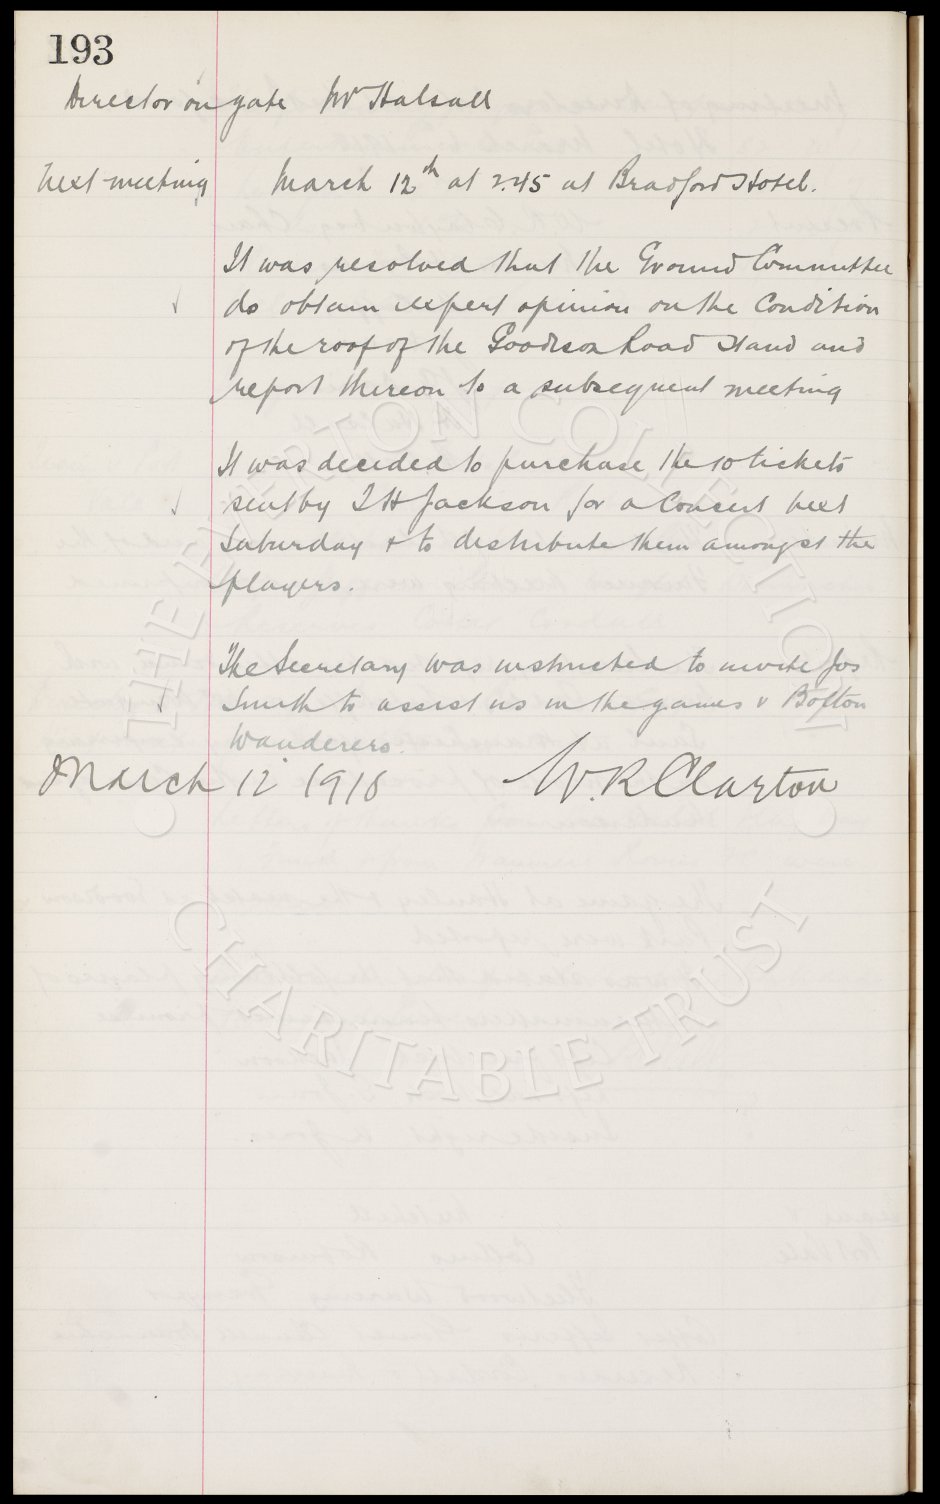 193
Director on gate Mr Halsall
Next meeting March 12th at 2.45 at Bradford Hotel.
It was resolved that the Ground Committee
do obtain expert opinion on the condition
of the roof of the Goodison Road Stand and
report thereon to a subsequent meeting
It was decided to purchase the 10 tickets
sent by T H Jackson for a Concert next
Saturday & to distribute them amongst the
players.
The Secretary was instructed to invite Jos
Smith to assist us in the games v Bolton
Wanderers.
March 12 1918 W. R Clayton
THE EVERTON COLLECTION
CHARITABLE TRUST